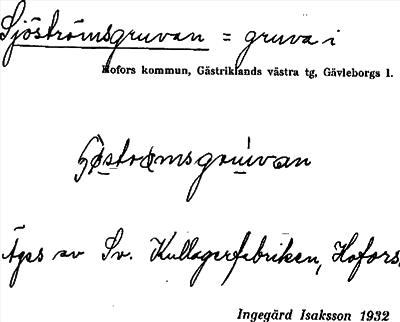 Sjöströmsgruvan = gruva i
Hofors kommun, Gästriklands västra tg, Gävleborgs l.
Äges av Sv. Kullagerfabriken, Hofors.
Ingegärd Isaksson 1932